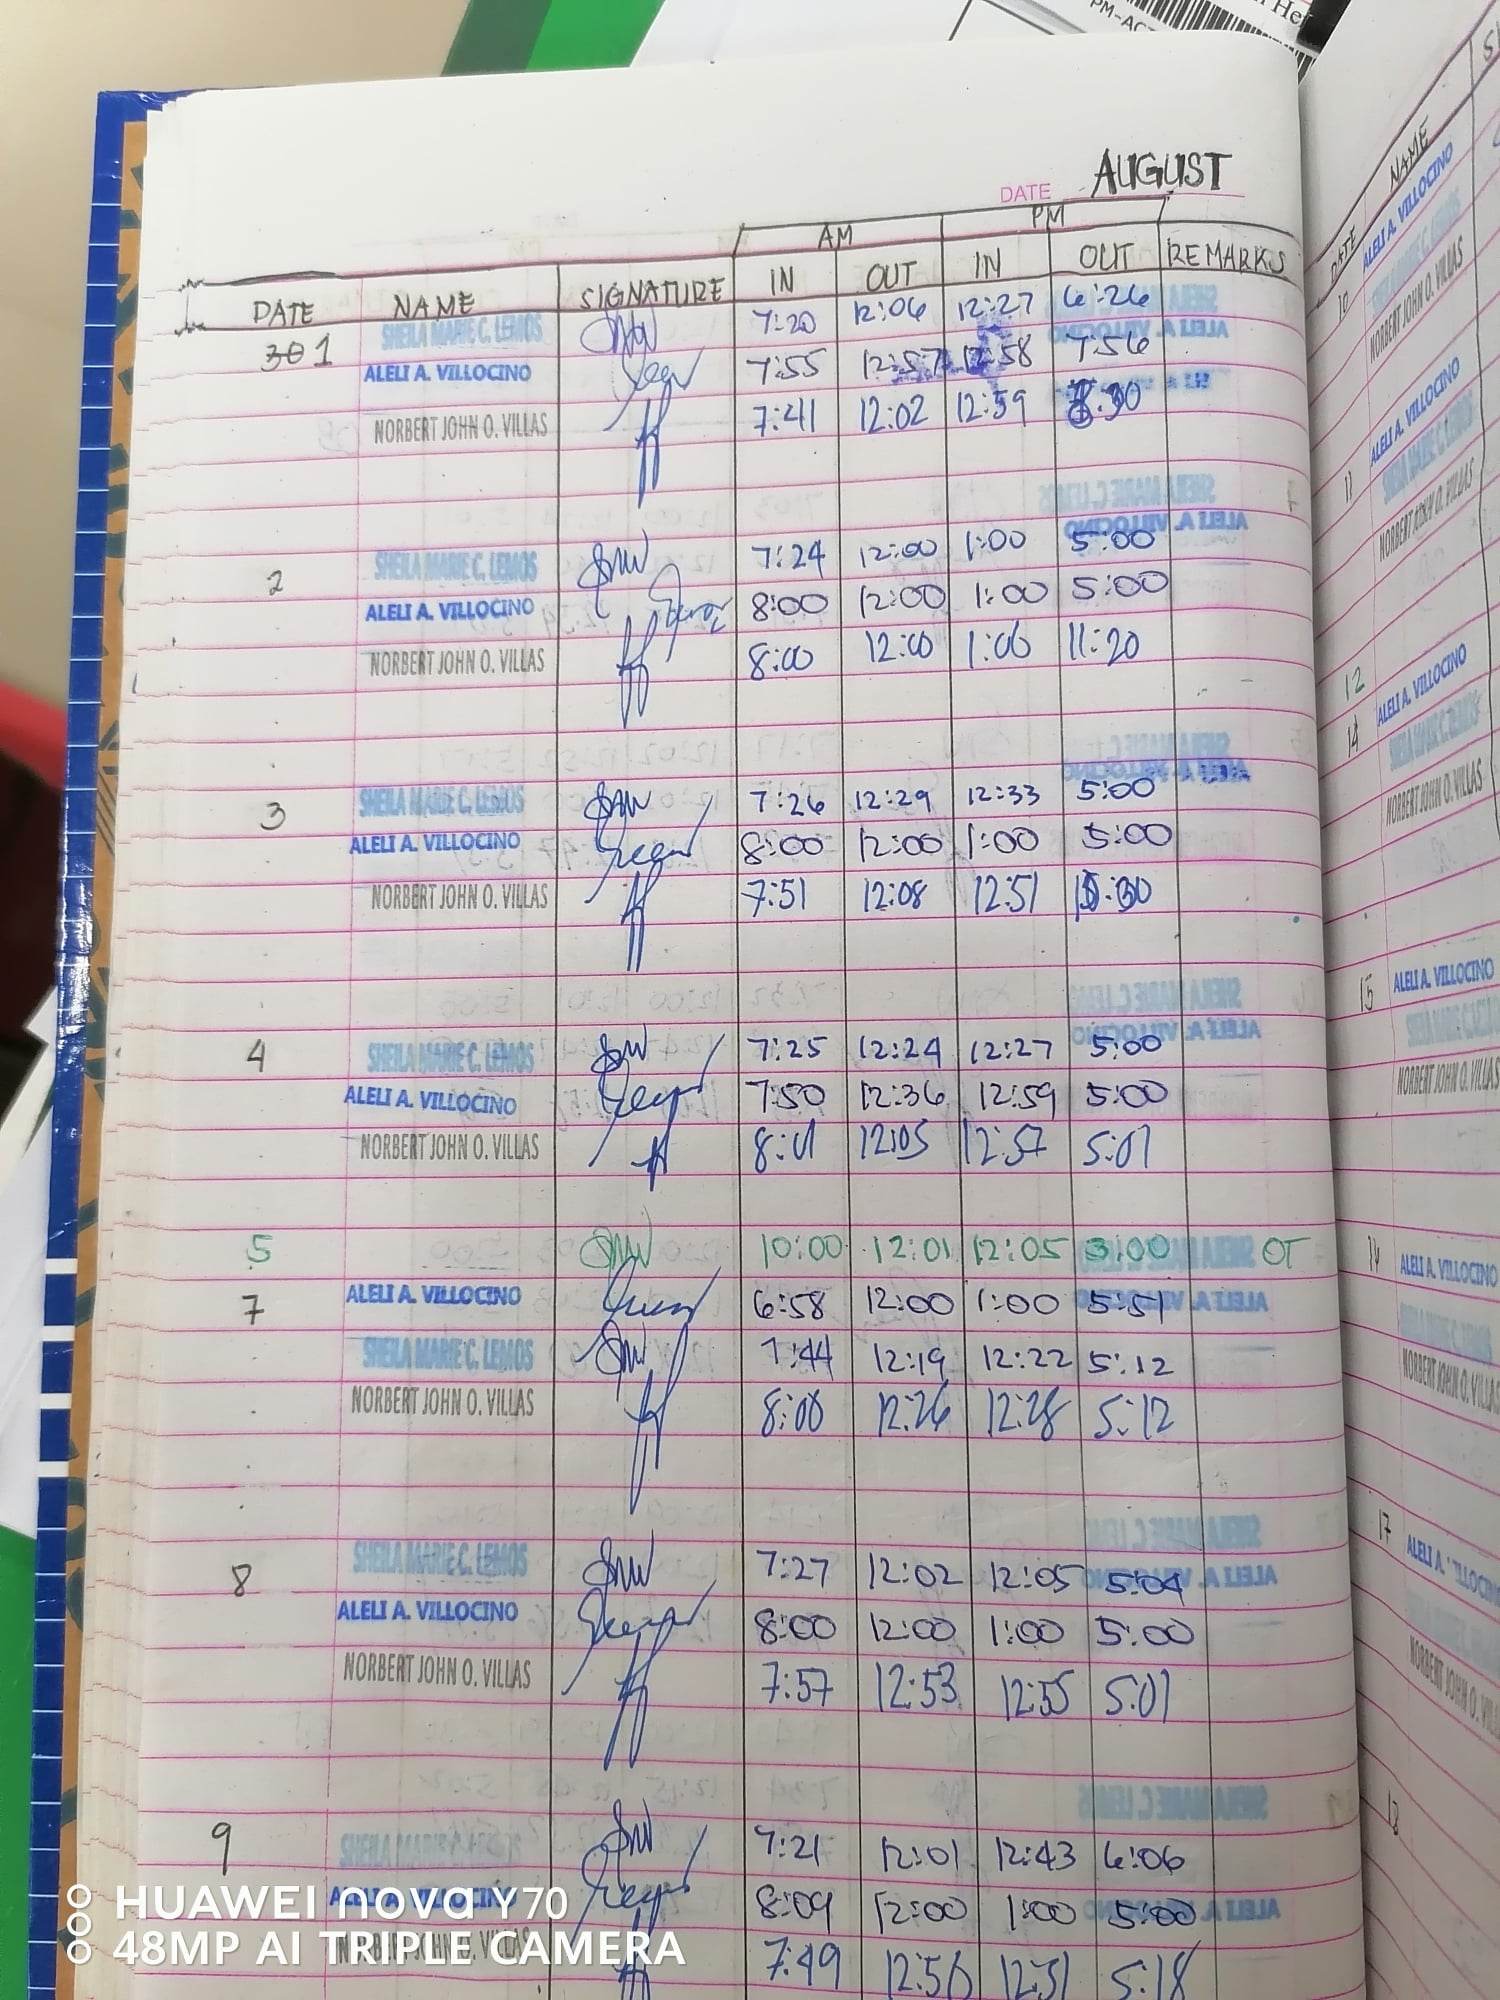 DATE AUGUST
AM PM
DATE NAME SIGNATURE IN OUT IN OUT REMARKS
1 SHEILA MARIE C. LEMOS 7:20 12:06 12:27 6:26
ALELI A. VILLOCINO 7:55 12:57 12:58 7:56
NORBERT JOHN O. VILLAS 7:41 12:02 12:59
2 SHEILA MARIE C. LEMOS 7:24 12:00 1:00 5:00
ALELI A. VILLOCINO 8:00 12:00 1:00 5:00
NORBERT JOHN O. VILLAS 8:00 12:00 1:00 11:20
3 SHEILA MARIE C. LEMOS 7:26 12:29 12:33 5:00
ALELI A. VILLOCINO 8:00 12:00 1:00 5:00
NORBERT JOHN O. VILLAS 7:51 12:08 12:51
4 SHEILA MARIE C. LEMOS 7:25 12:24 12:27 5:00
ALELI A. VILLOCINO 7:50 12:36 12:59 5:00
NORBERT JOHN O. VILLAS 8:01 12:05 12:57 5:01
5 10:00 12:01 12:05 3:00 OT
7 ALELI A. VILLOCINO 6:58 12:00 1:00 5:51
SHEILA MARIE C. LEMOS 7:44 12:19 12:22 5:12
NORBERT JOHN O. VILLAS 8:08 12:26 12:28 5:12
8 SHEILA MARIE C. LEMOS 7:27 12:02 12:05 5:04
ALELI A. VILLOCINO 8:00 12:00 1:00 5:00
NORBERT JOHN O. VILLAS 7:57 12:53 12:55 5:01
9 SHEILA MARIE C. LEMOS 7:21 12:01 12:43 6:06
ALELI A. VILLOCINO 8:09 12:00 1:00 5:00
NORBERT JOHN O. VILLAS 7:49 12:56 5:18
HUAWEI nova Y70
48MP AI TRIPLE CAMERA
DATE NAME
10 ALELI A. VILLOCINO
NORBERT JOHN O. VILLAS
11 ALELI A. VILLOCINO
NORBERT JOHN O. VILLAS
12
14 ALELI A. VILLOCINO
NORBERT JOHN O. VILLAS
15 ALELI A. VILLOCINO
NORBERT JOHN O. VILLAS
ALELI A. VILLOCINO
NORBERT JOHN O. VILLAS
17 ALELI A.
18